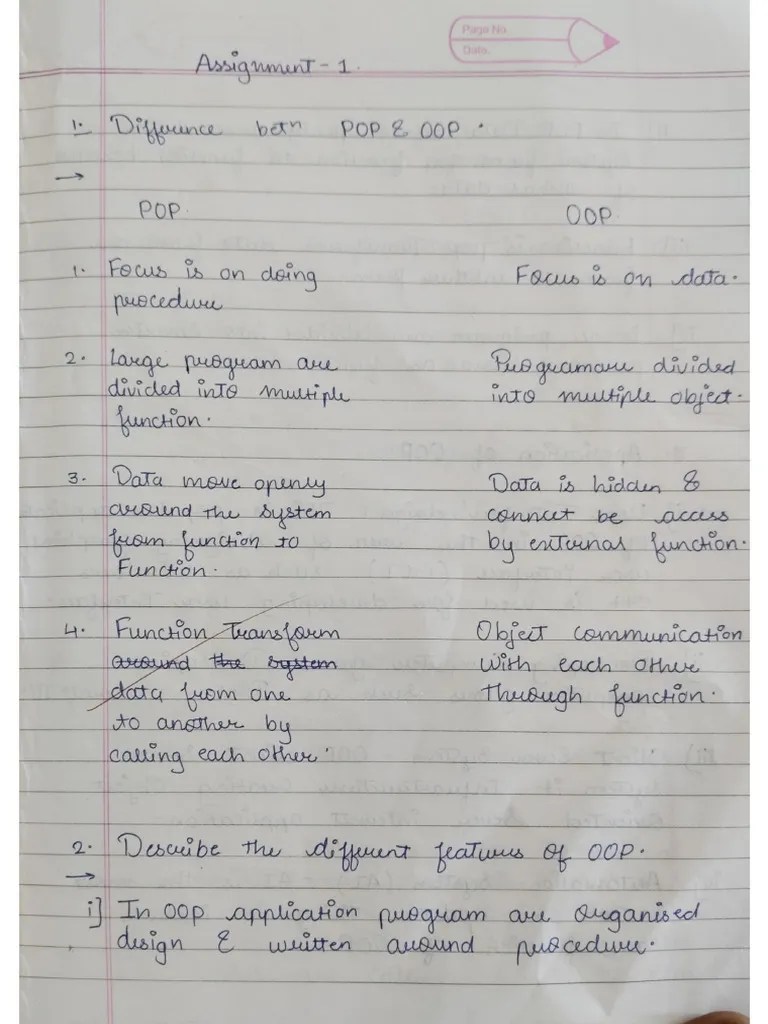 Page No.
Date.
Assignment - 1.
1. Difference betⁿ POP & OOP.
→
POP OOP
1. Focus is on doing Focus is on data.
procedure
2. Large program are Programare divided
divided into multiple into multiple object.
function.
3. Data move openly Data is hidden &
around the system connut be access
from function to by external function.
Function.
4. Function Transform Object communication
around the system with each other
data from one through function.
to another by
calling each other.
2. Describe the different features of OOP.
→
i] In OOP application program are organised
design & written around procedure.